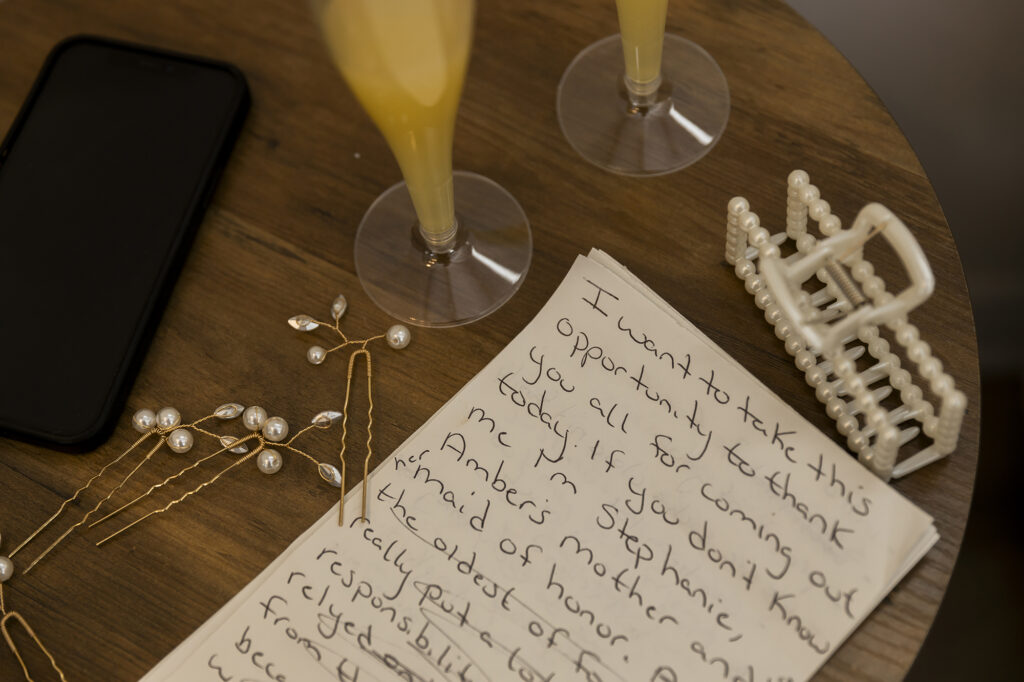 I want to take this
opportunity to thank
you all for coming out
today. If you don't know
me I'm Stephanie,
Amber's mother and
her maid of honor.
the oldest of
really put a lot
responsibilit
relyed
from th
bec